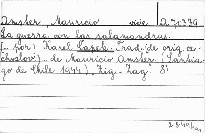 Amster, Mauricio
La guerra con las salamandras.
(por) Karel Čapek. Trad. de orig. če
de Mauricio Amster. (Santia
go de Chile 1944), Zig-Zag. 8°